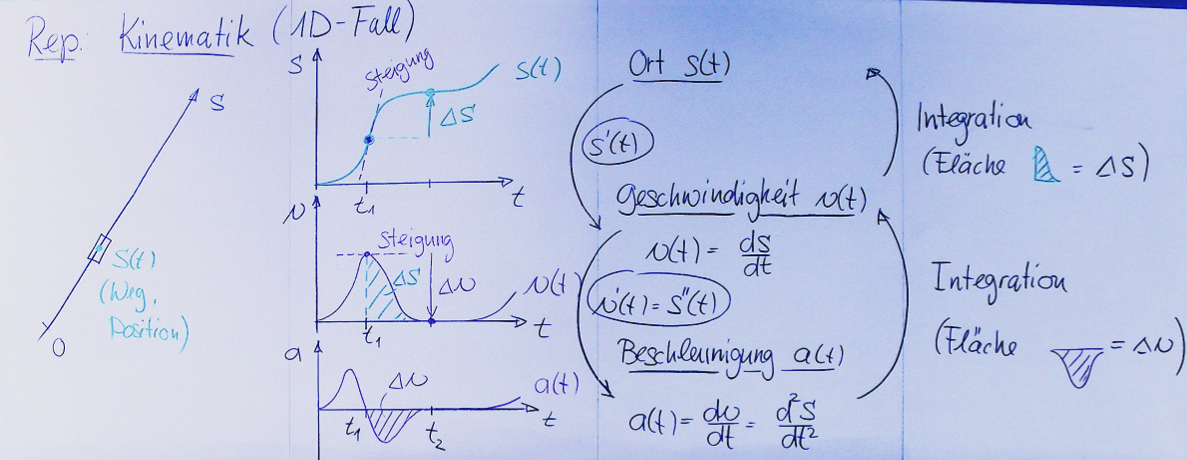 Rep. Kinematik (1D-Fall)
S
S(t)
(Weg,
Position)
0
S
Steigung
S(t)
ΔS
t₁
t
v
Steigung
ΔS
Δv
v(t)
t₁
t
a
Δv
a(t)
t₁
t₂
t
Ort S(t)
s'(t)
Geschwindigkeit v(t)
v(t) = dS/dt
v'(t) = S''(t)
Beschleunigung a(t)
a(t) = dv/dt = d²S/dt²
Integration
(Fläche = ΔS)
Integration
(Fläche = Δv)